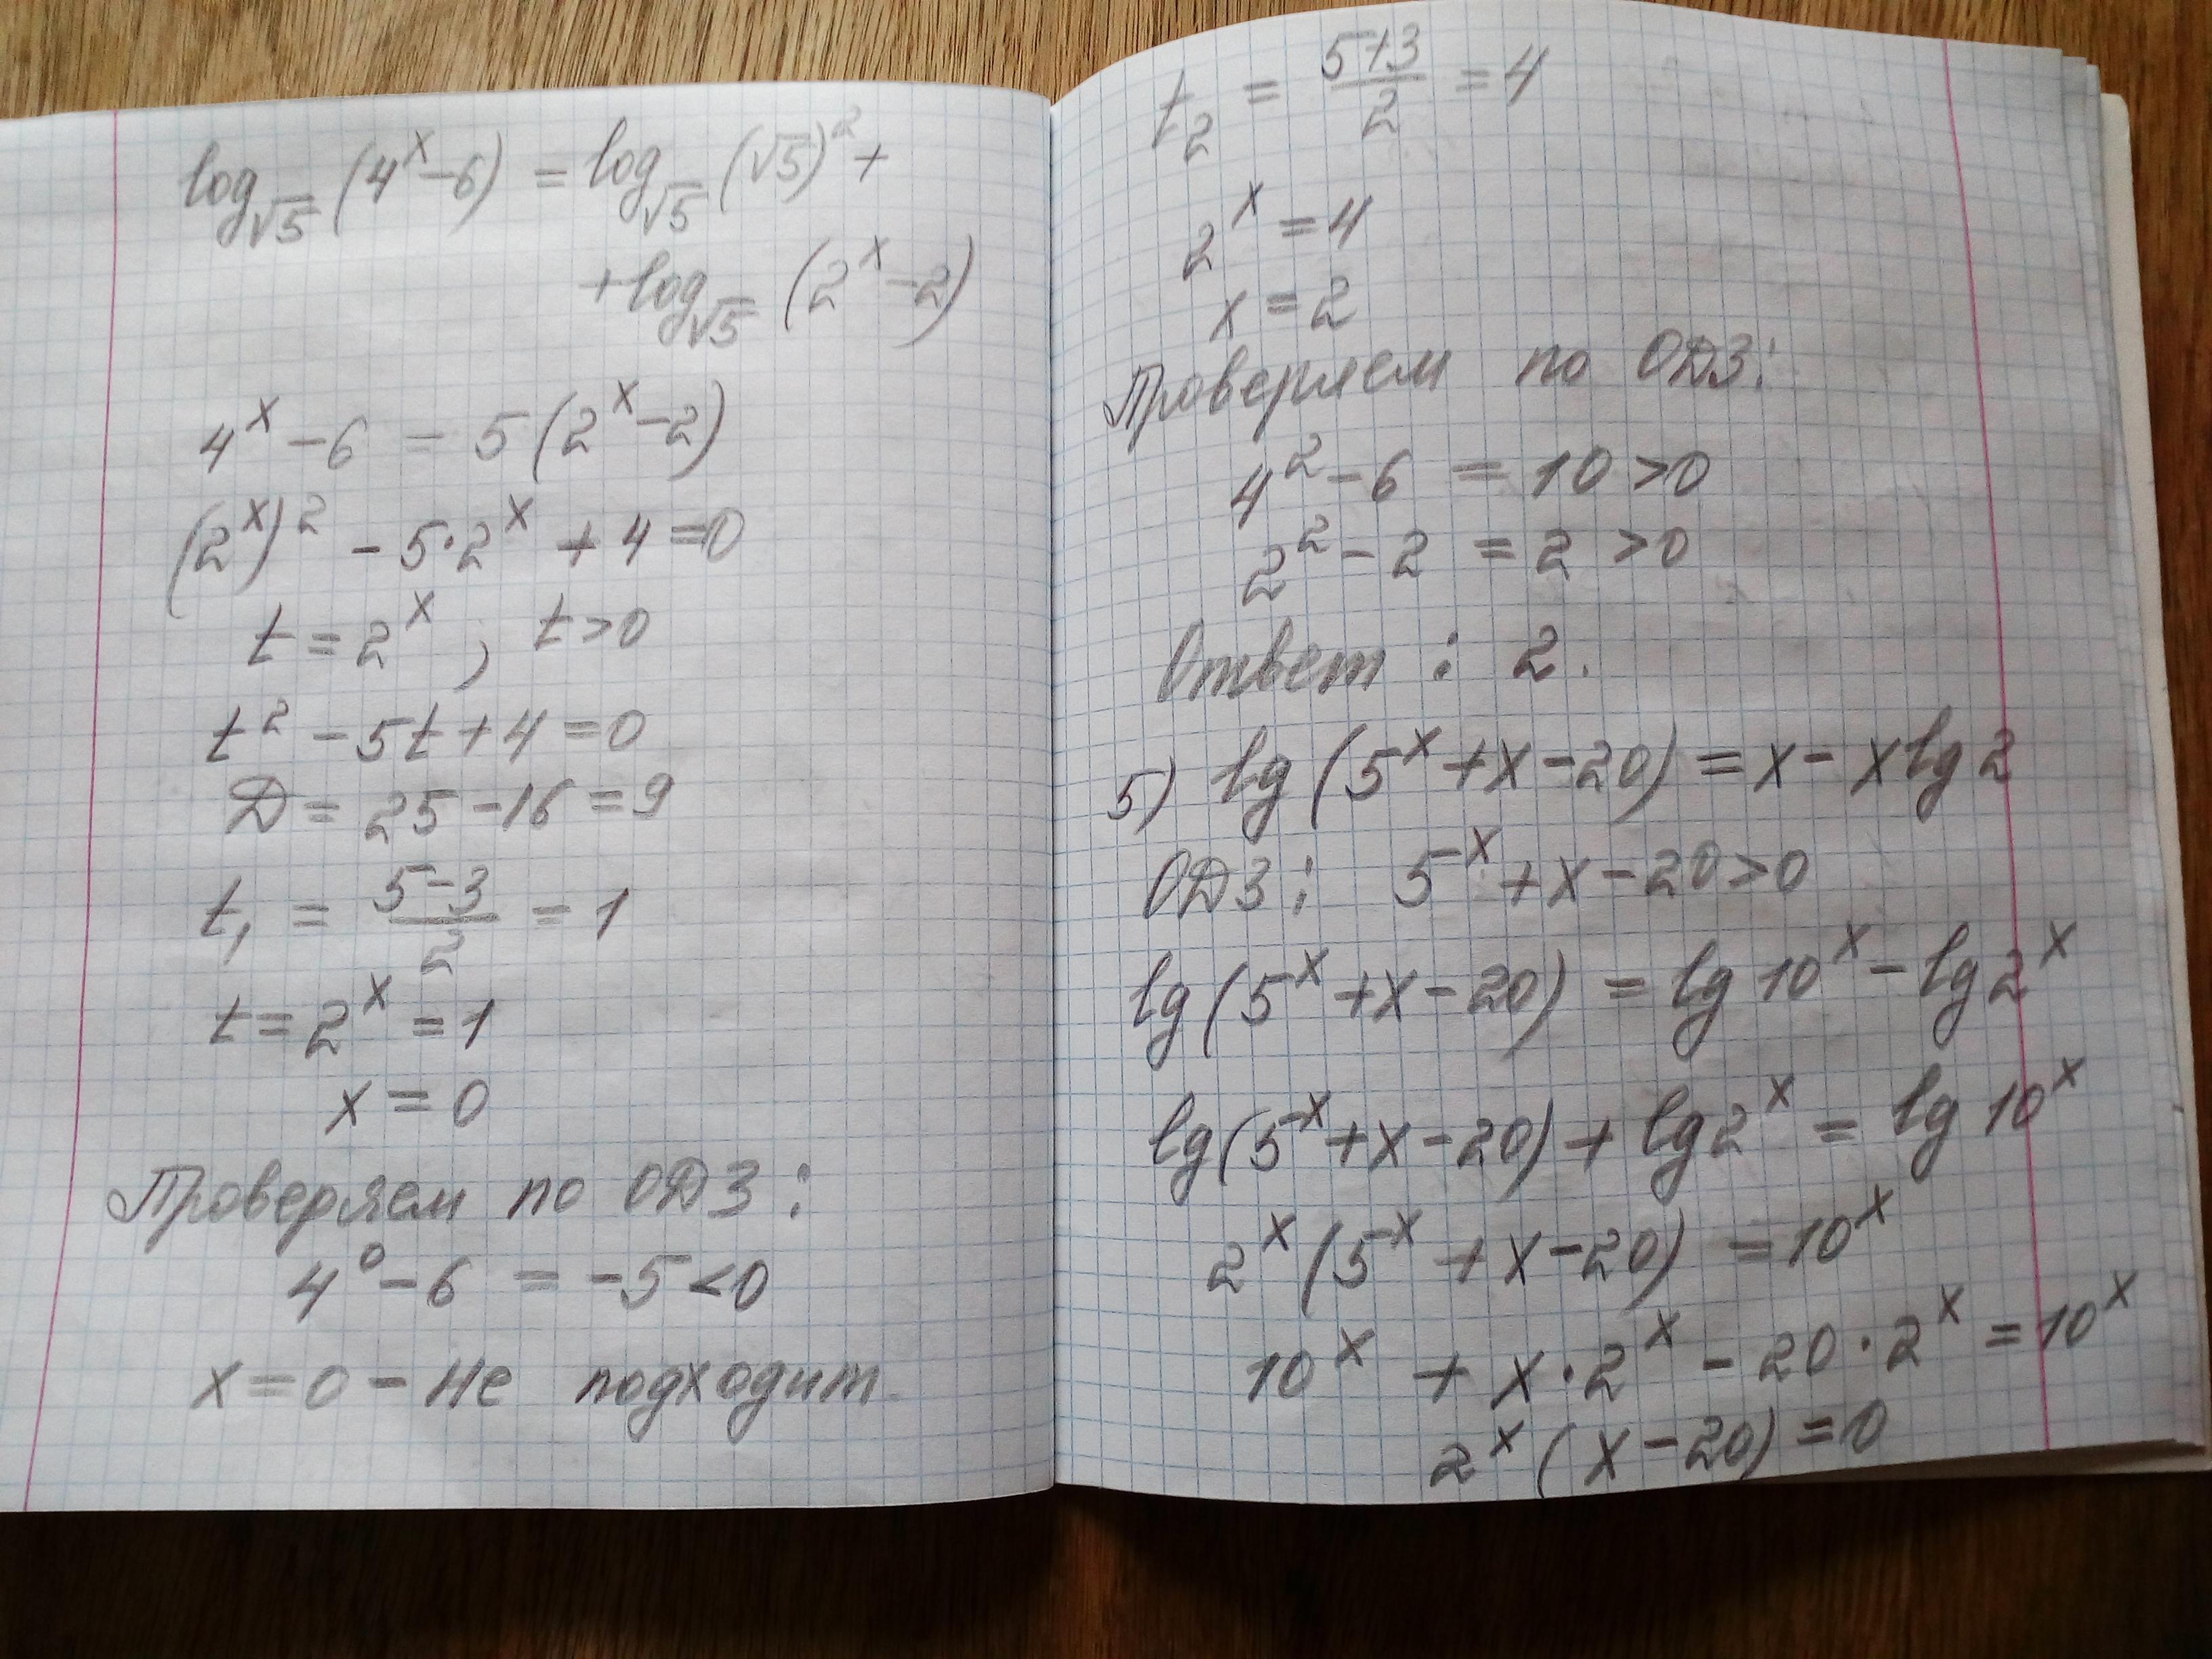 log_√5 (4^x - 6) = log_√5 (√5)^2 +
+ log_√5 (2^x - 2)
4^x - 6 = 5(2^x - 2)
(2^x)^2 - 5·2^x + 4 = 0
t = 2^x ; t > 0
t^2 - 5t + 4 = 0
D = 25 - 16 = 9
t_1 = (5-3)/2 = 1
t = 2^x = 1
x = 0
Проверяем по ОДЗ:
4^0 - 6 = -5 < 0
x = 0 - не подходит.
t_2 = (5+3)/2 = 4
2^x = 4
x = 2
Проверяем по ОДЗ:
4^2 - 6 = 10 > 0
2^2 - 2 = 2 > 0
Ответ: 2.
5) lg(5^x + x - 20) = x - x lg 2
ОДЗ: 5^x + x - 20 > 0
lg(5^x + x - 20) = lg 10^x - lg 2^x
lg(5^x + x - 20) + lg 2^x = lg 10^x
2^x (5^x + x - 20) = 10^x
10^x + x·2^x - 20·2^x = 10^x
2^x (x - 20) = 0